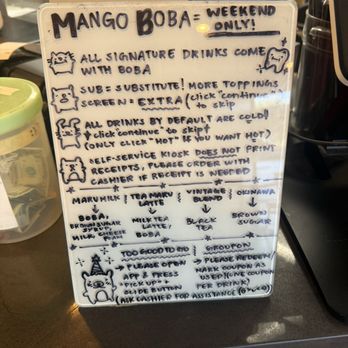 MANGO BOBA = WEEKEND ONLY!
ALL SIGNATURE DRINKS COME
WITH BOBA
SUB = SUBSTITUTE! MORE TOPPINGS
SCREEN = EXTRA (click "continue" to skip)
ALL DRINKS BY DEFAULT ARE COLD!
click "continue" to skip
(ONLY CLICK "HOT" IF YOU WANT HOT)
SELF-SERVICE KIOSK DOES NOT PRINT
RECEIPTS, PLEASE ORDER WITH
CASHIER IF RECEIPT IS NEEDED
MARU MILK
BOBA,
BROWN SUGAR
SYRUP,
MILK CHEESE
FOAM
TEA MARU
LATTE
MILK TEA
LATTE/
BOBA
VINTAGE
BLEND
BLACK
TEA
OKINAWA
BROWN
SUGAR
TOO GOOD TO GO
→ PLEASE OPEN
APP & PRESS
PICK UP +
SLIDE BUTTON
(ASK CASHIER FOR ASSISTANCE)
GROUPON
→ PLEASE REDEEM/
MARK COUPON AS
USED (ONE COUPON
PER DRINK)